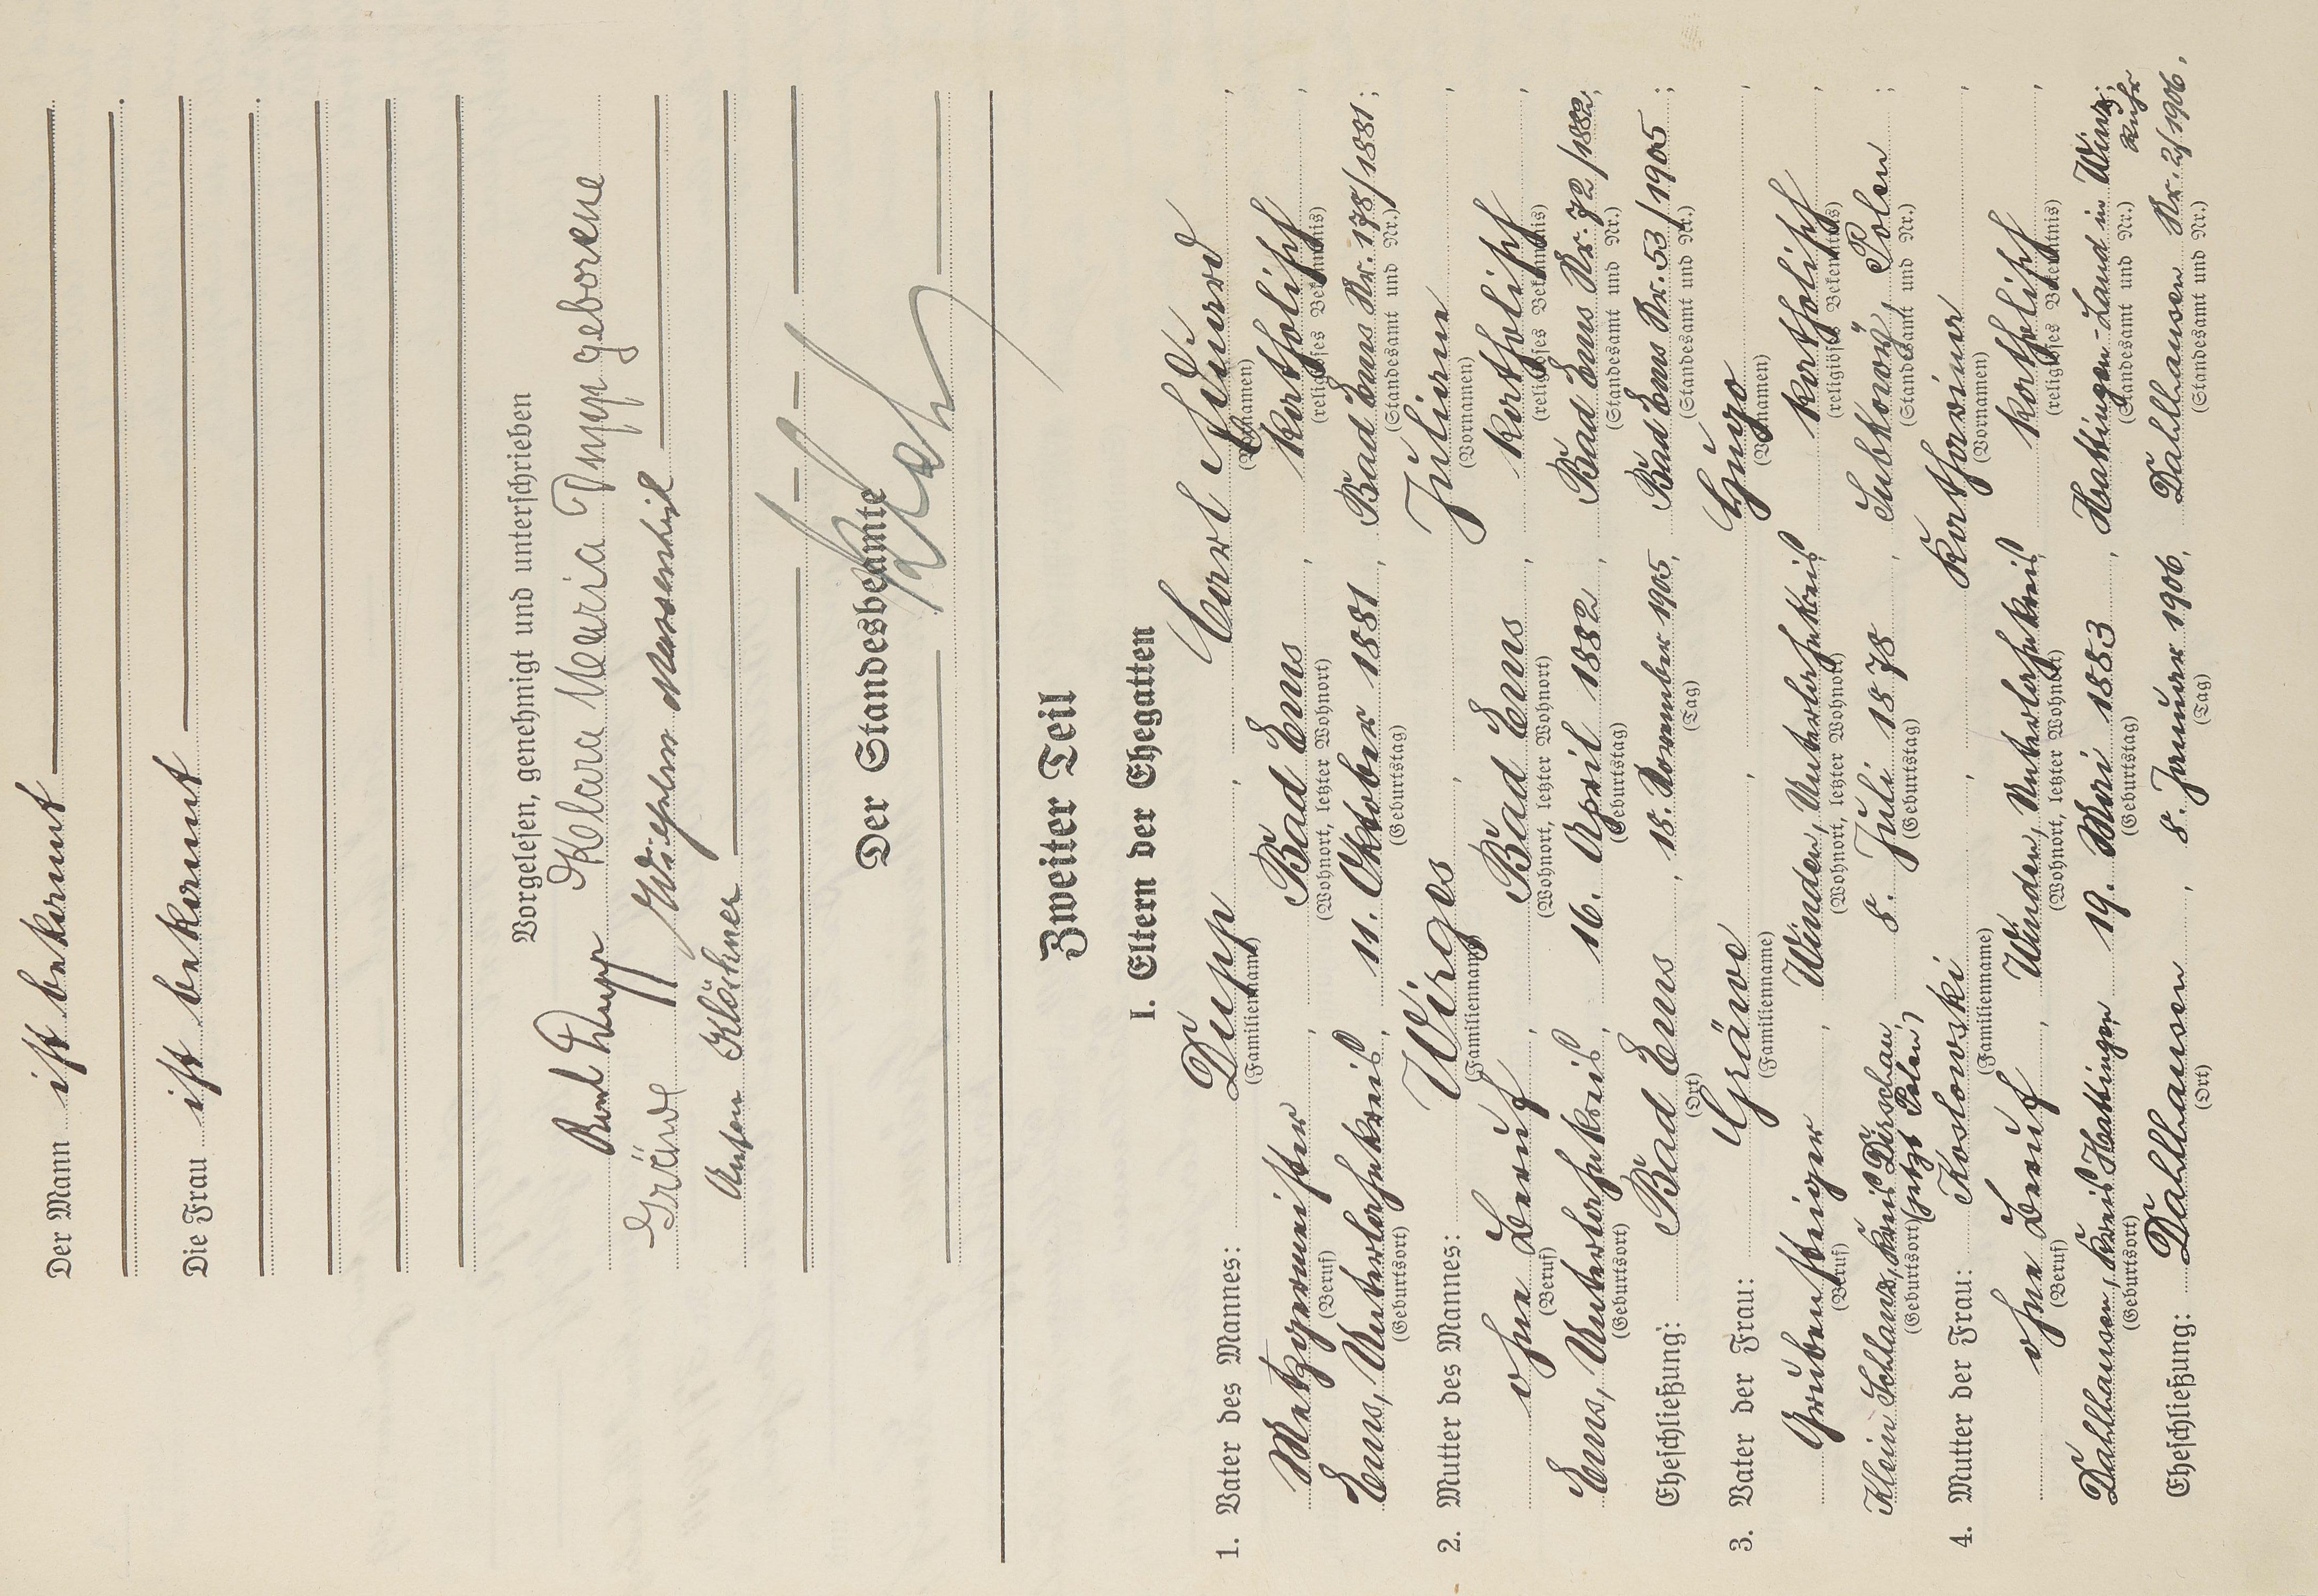 Der Mann ist bekannt
Die Frau ist bekannt
Vorgelesen, genehmigt und unterschrieben
Klara Maria Dupp geborene
Gräwe Wilhelm
Anton Klöckner
Der Standesbeamte
Zweiter Teil
I. Eltern der Ehegatten
1. Vater des Mannes: Dupp, Carl Eduard,
(Familienname) (Vornamen)
Metzgermeister, Bad Ems, katholisch,
(Beruf) (Wohnort, letzter Wohnort) (religiöses Bekenntnis)
Ems, Unterlahnkreis, 11. Oktober 1881, Bad Ems Nr. 178/1881;
(Geburtsort) (Geburtstag) (Standesamt und Nr.)
2. Mutter des Mannes: Wirges, Juliane,
(Familienname) (Vornamen)
ohne Beruf, Bad Ems, katholisch,
(Beruf) (Wohnort, letzter Wohnort) (religiöses Bekenntnis)
Ems, Unterlahnkreis, 16. April 1882, Bad Ems Nr. 72/1882;
(Geburtsort) (Geburtstag) (Standesamt und Nr.)
Eheschließung: Bad Ems, 18. November 1905, Bad Ems Nr. 53/1905;
(Ort) (Tag) (Standesamt und Nr.)
3. Vater der Frau: Gräwe, Hugo,
(Familienname) (Vornamen)
Grubensteiger, Winden, Unterlahnkreis, katholisch,
(Beruf) (Wohnort, letzter Wohnort) (religiöses Bekenntnis)
Klein Schlanz, Kreis Dirschau, (jetzt Polen), 8. Juli 1878, Subkowy, Polen;
(Geburtsort) (Geburtstag) (Standesamt und Nr.)
4. Mutter der Frau: Koslowski, Katharina,
(Familienname) (Vornamen)
ohne Beruf, Winden, Unterlahnkreis, katholisch,
(Beruf) (Wohnort, letzter Wohnort) (religiöses Bekenntnis)
Dahlhausen, Kreis Hattingen, 19. Mai 1883, Hattingen-Land in Winz; Ruhr
(Geburtsort) (Geburtstag) (Standesamt und Nr.)
Eheschließung: Dahlhausen, 8. Januar 1906, Dahlhausen Nr. 2/1906.
(Ort) (Tag) (Standesamt und Nr.)